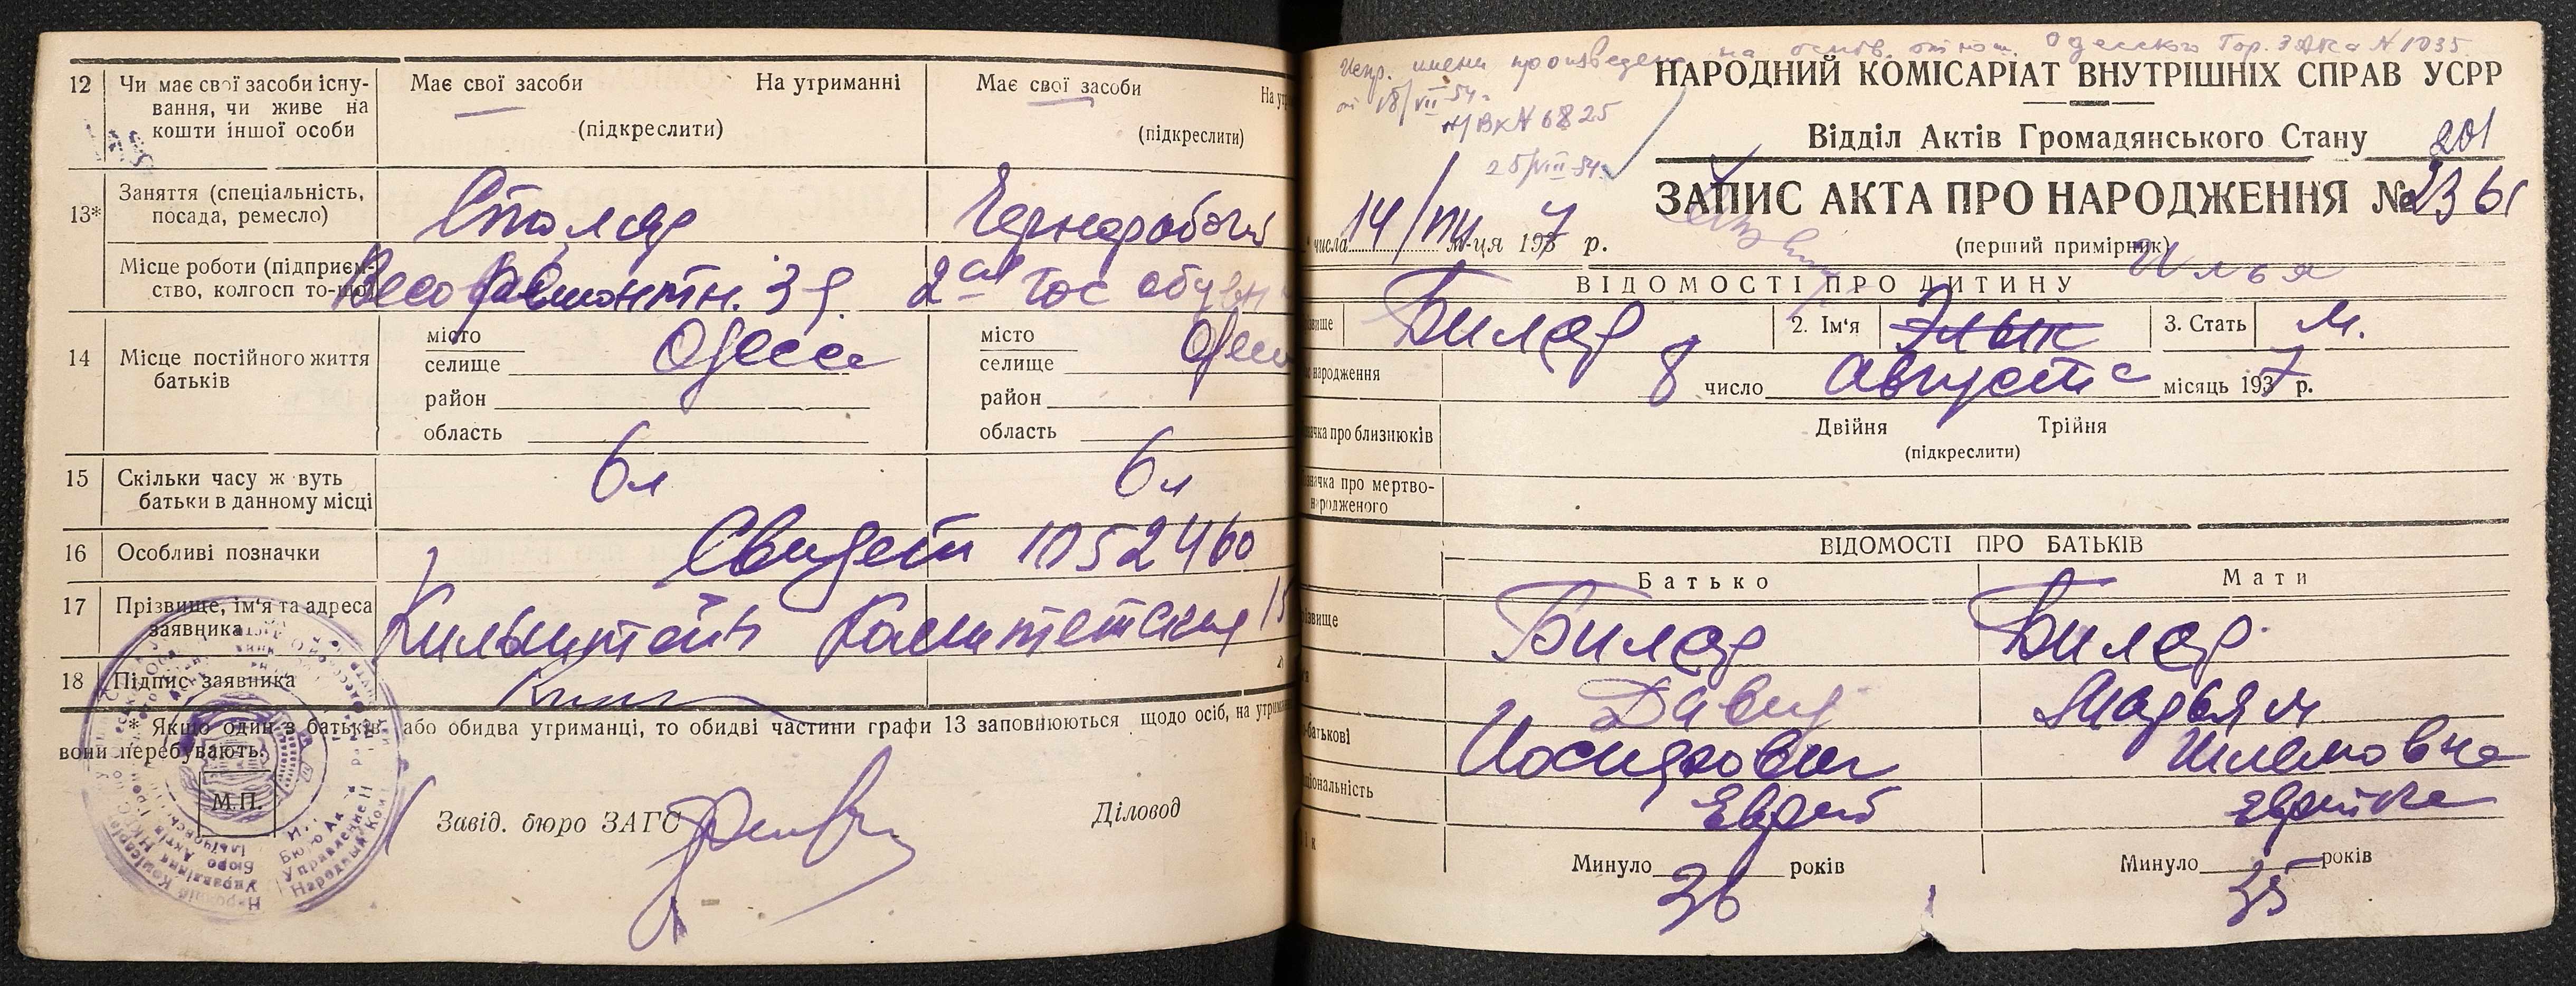 12 Чи має свої засоби існу-
вання, чи живе на
кошти іншої особи
Має свої засоби На утриманні
(підкреслити)
Має свої засоби
(підкреслити)
13* Заняття (спеціальність,
посада, ремесло)
Столяр
Чернорабочий
Місце роботи (підприєм-
ство, колгосп то-що)
Весоремонтн. з-д.
2ая Гос обувн
14 Місце постійного життя
батьків
місто
селище Одесса
район
область
місто
селище
район
область
15 Скільки часу ж вуть
батьки в данному місці
6 л
6 л
16 Особливі позначки
Свидет 1052460
17 Прізвище, ім'я та адреса
заявника
Кильштейн Комитетская 15
18 Підпис заявника
* Якщо один з батьків або обидва утриманці, то обидві частини графи 13 заповнюються щодо осіб, на
вони перебувають.
М.П.
Завід. бюро ЗАГС
Діловод
Испр. имени произведено на основ. отнош. Одесского Гор. ЗАГСа N 1035
от 18/VII-54г
Н/Вх N 6825
25/VIII-54г.
НАРОДНИЙ КОМІСАРІАТ ВНУТРІШНІХ СПРАВ УСРР
Відділ Актів Громадянського Стану
201
ЗАПИС АКТА ПРО НАРОДЖЕННЯ № 2361
числа 14/VIII м-ця 1937 р.
(перший примірник)
Илья
ВІДОМОСТІ ПРО ДИТИНУ
Биляр
2. Ім'я Элык
3. Стать м.
народження 8 число Августа місяць 1937 р.
про близнюків
Двійня Трійня
(підкреслити)
про мертво-
народженого
ВІДОМОСТІ ПРО БАТЬКІВ
Батько Мати
Биляр Биляр
Давид Марьям
Иосифович Шлемовна
Еврей Еврейка
Минуло 36 років
Минуло 35 років